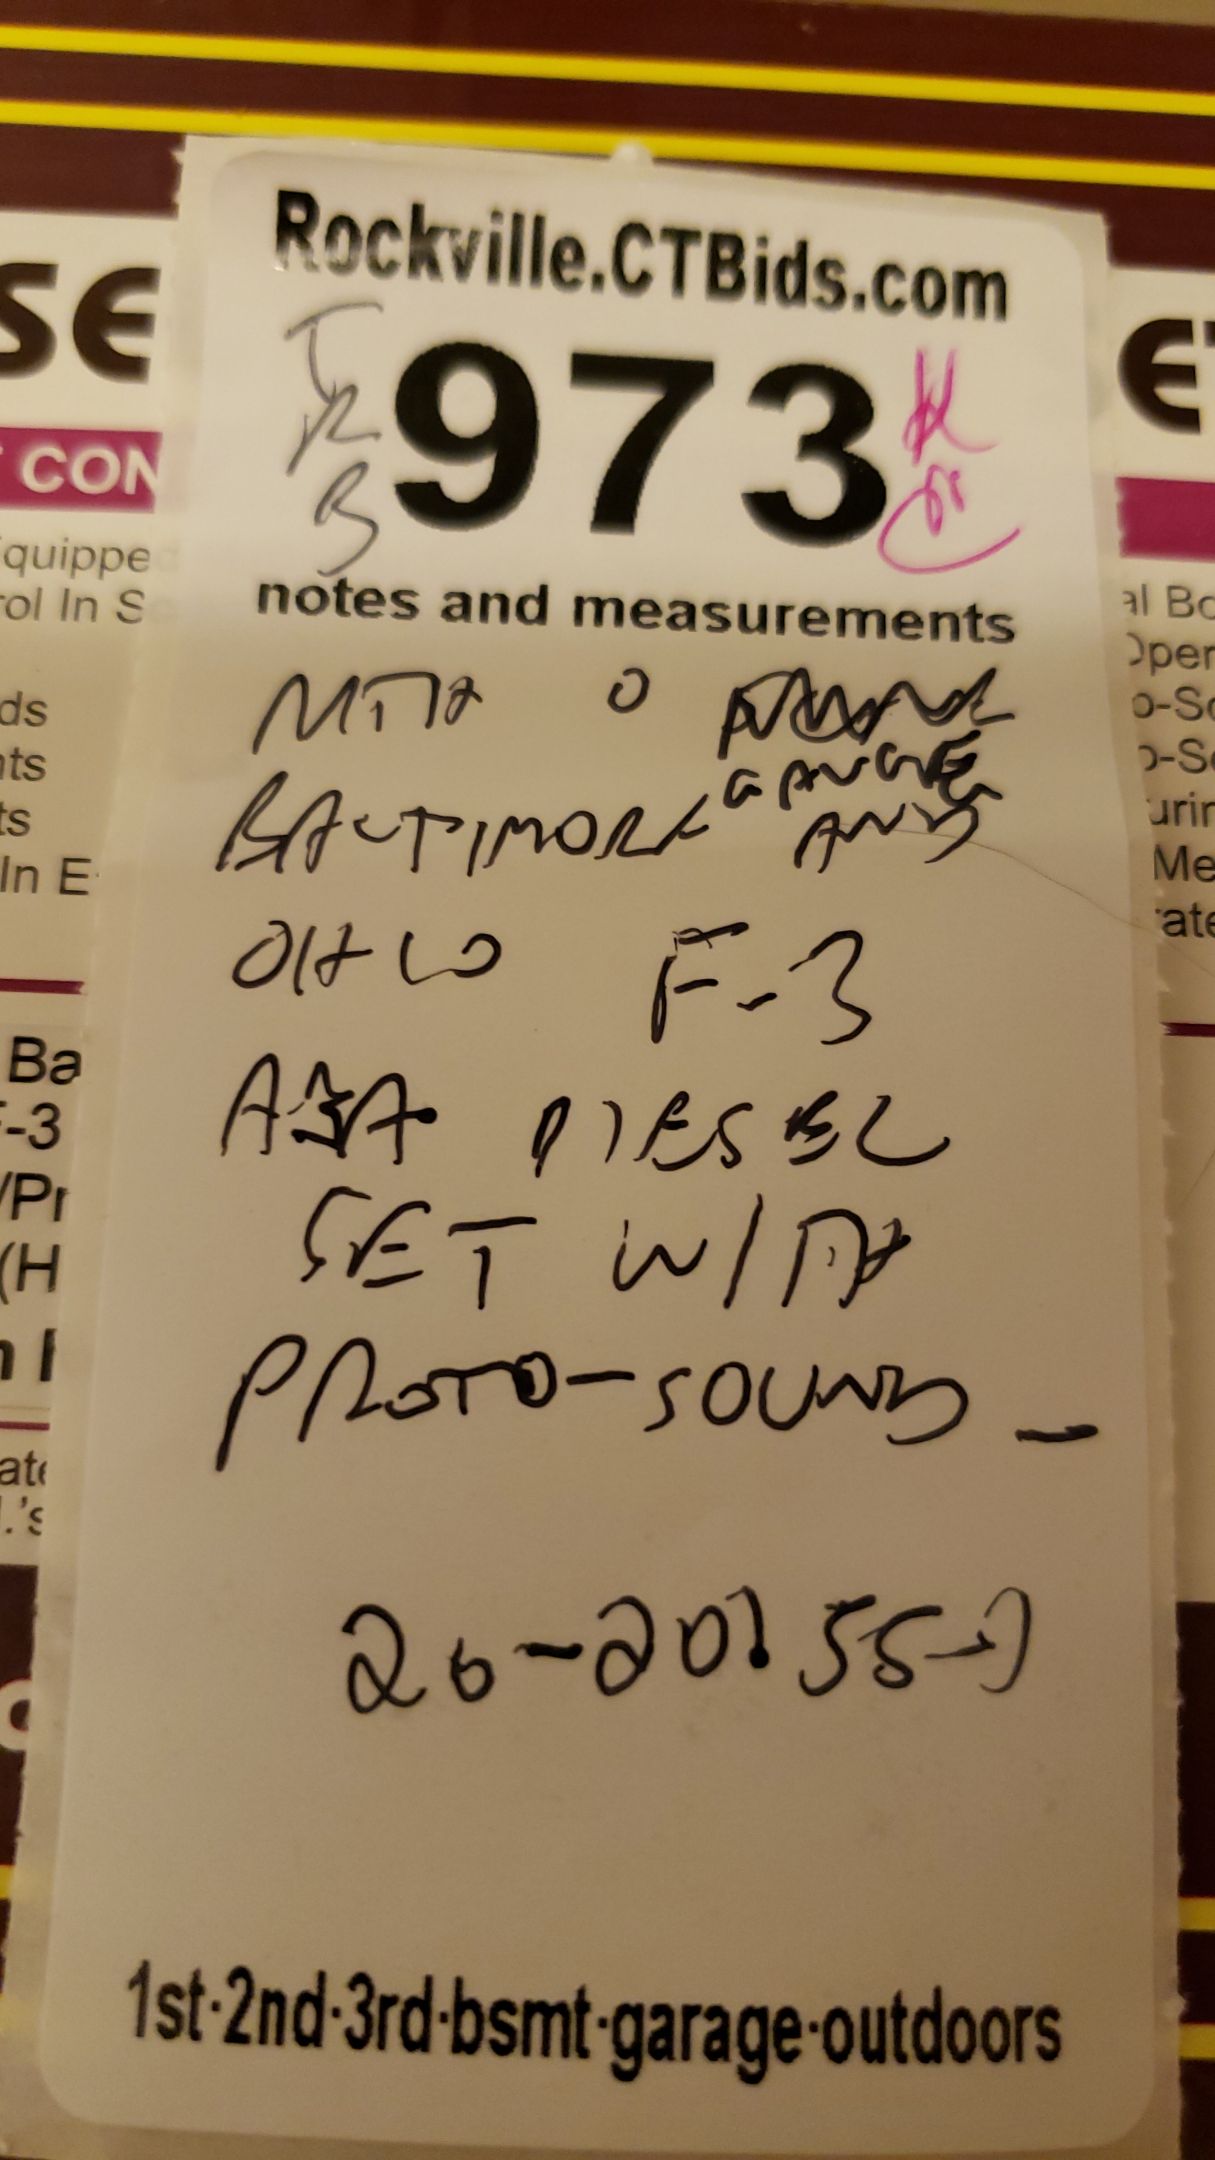 Rockville.CTBids.com
SE
ET
T
R
B
973
CON
notes and measurements
quippe
rol In S
ds
nts
ts
In E
al Bo
Oper
o-So
o-So
urin
Me
rate
MTH O
GAUGE
BALTIMORE AND
OHIO F-3
ABA DIESEL
SET WITH
PROTO-SOUND -
20-20155-1
Ba
-3
/Pr
(H
ate
.'s
1st·2nd·3rd·bsmt·garage·outdoors